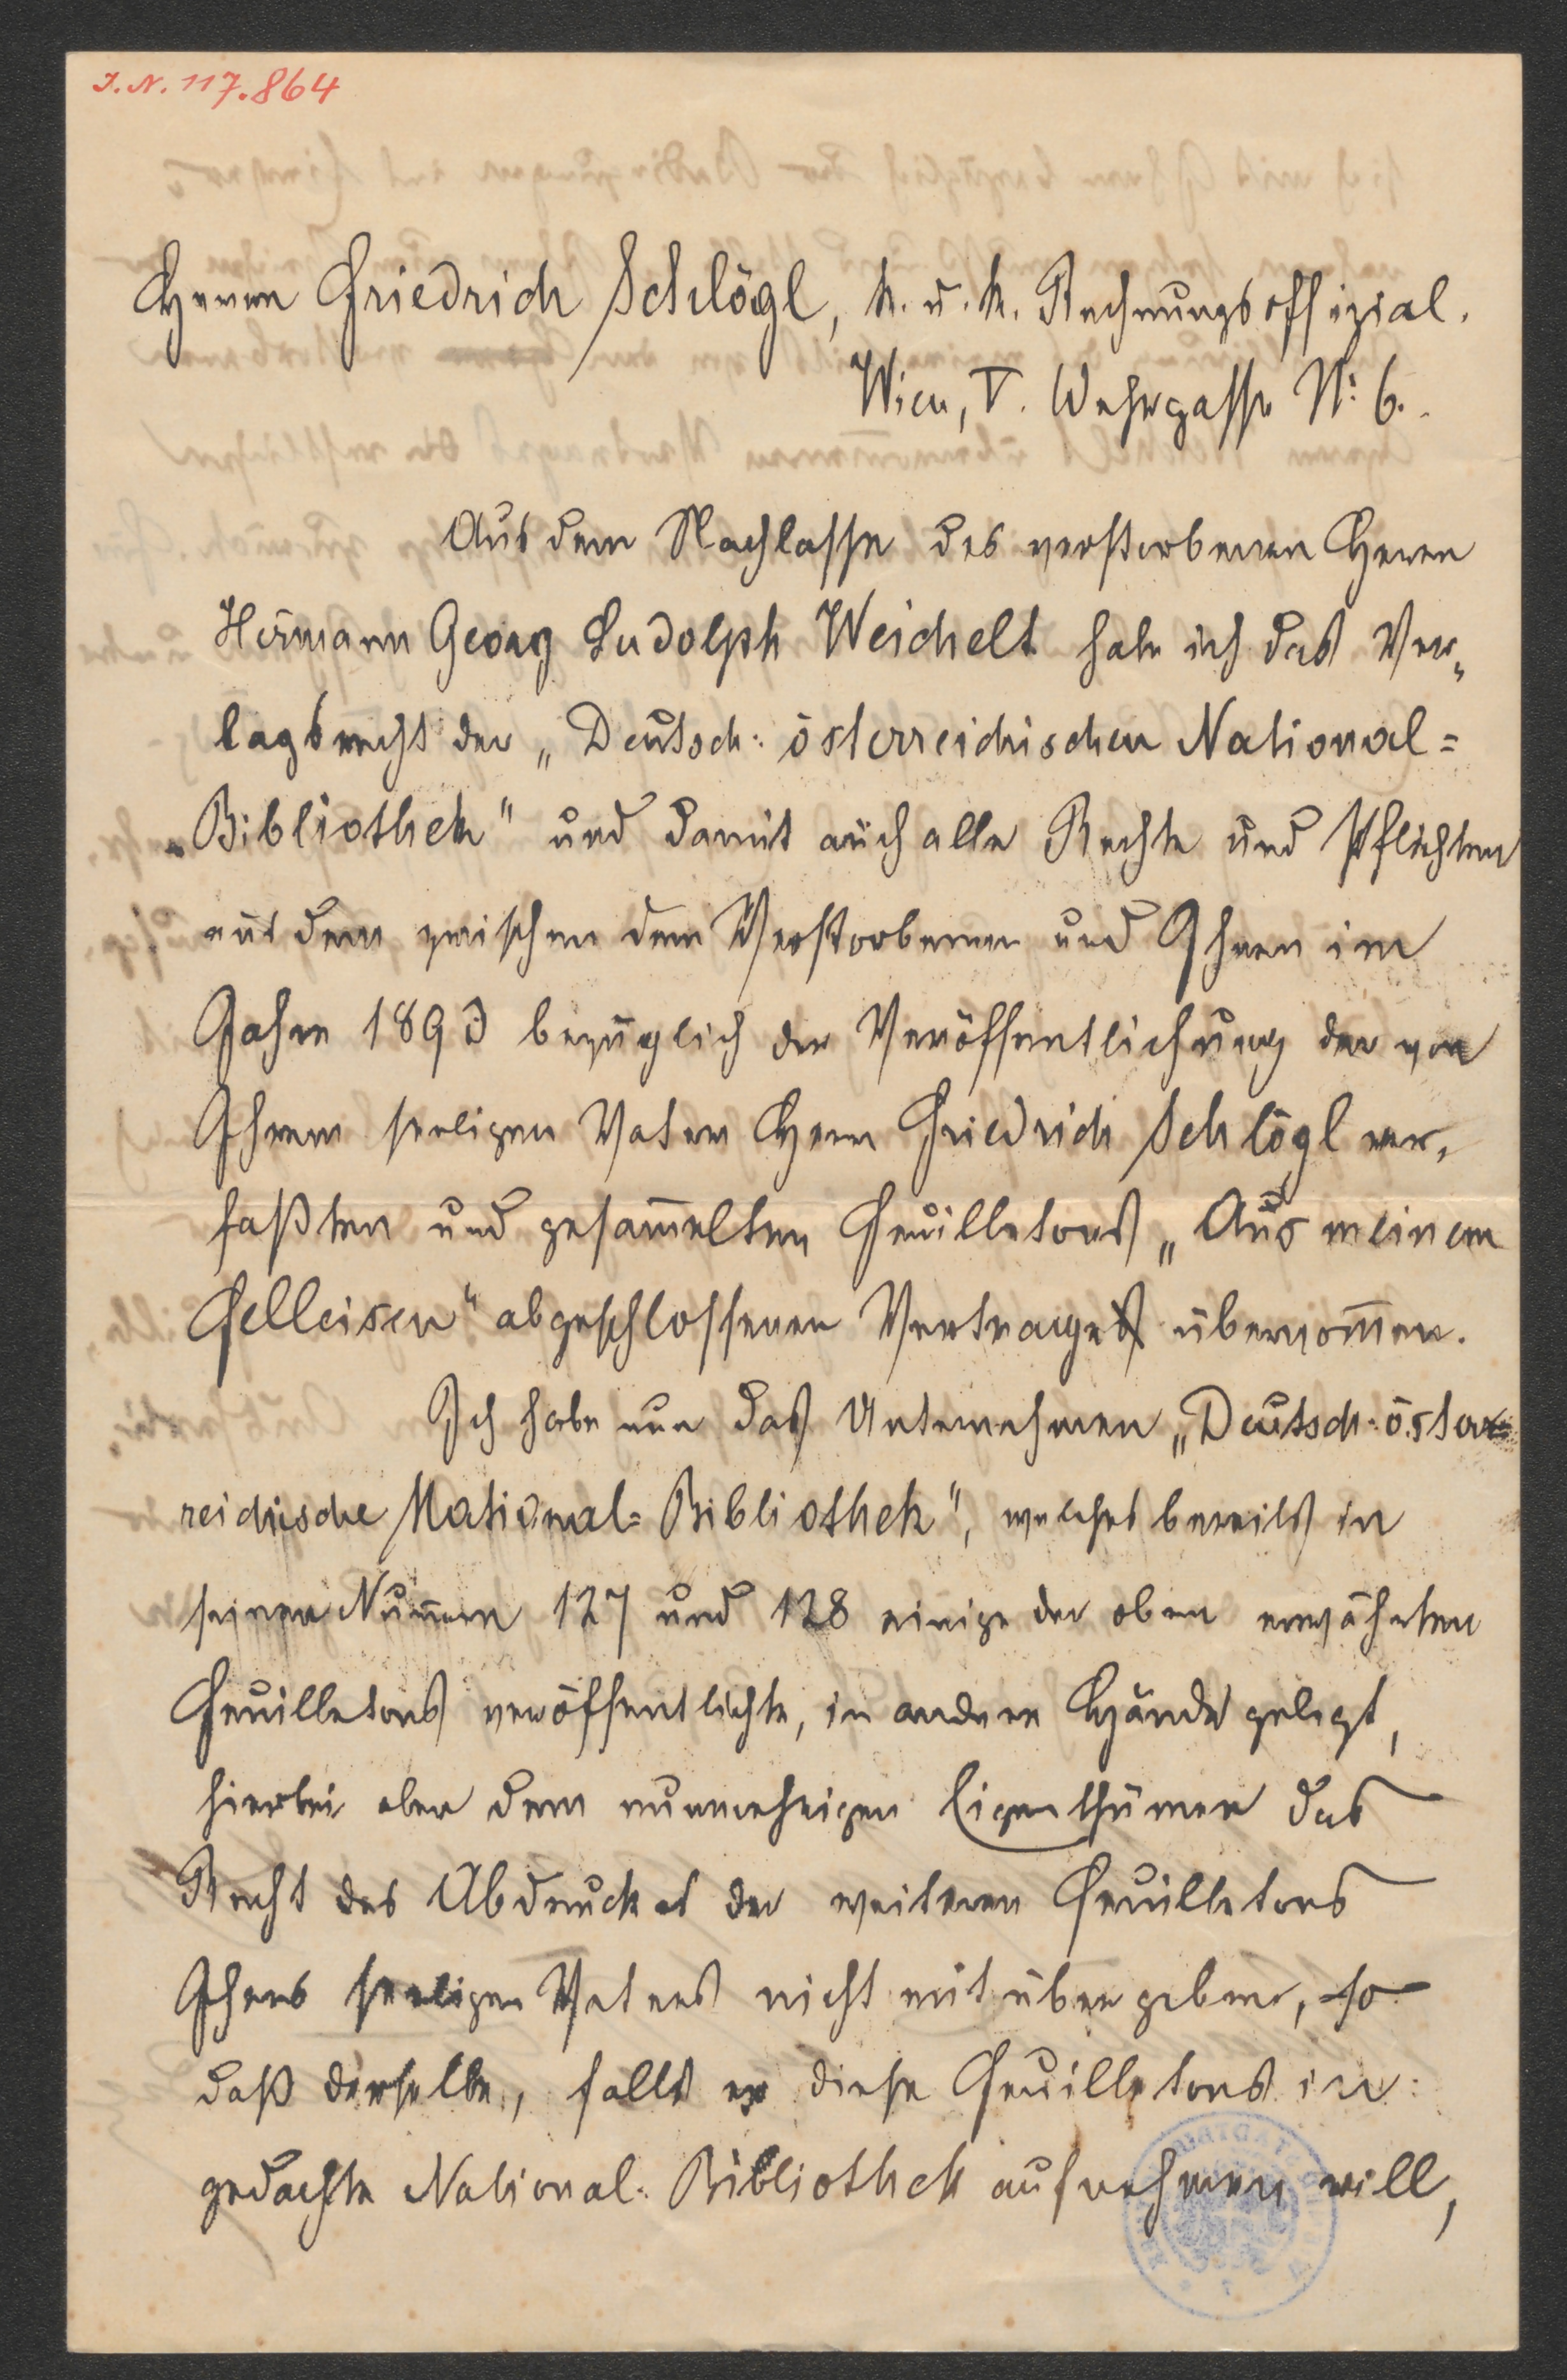 I. N. 117.864
Herrn Friedrich Schlögl, k. u. k. Rechnungsoffizial.
Wien, V. Wehrgasse N: 6.
Aus dem Nachlasse des verstorbenen Herrn
Hermann Georg Ludolph Weichelt habe ich das Ver„
lagsrecht der „Deutsch-österreichischen National=
„Bibliothek" und damit auch alle Rechte und Pflichten
aus dem zwischen dem Verstorbenen und Ihnen im
Jahre 1893 bezüglich der Veröffentlichung der von
Ihrem seeligen Vater Herrn Friedrich Schlögl ver„
faßten und gesam̄elten Feuilletons „Aus meinem
Felleisen" abgeschlossenen Vertrages übernom̄en.
Ich habe nun das Unternehmen „Deutsch-öster=
reichische National=Bibliothek", welches bereits in
seinen Num̄ern 127 und 128 einige der oben erwähnten
Feuilletons veröffentlichte, in andere Hände gelegt,
hierbei aber dem nunmehrigen Eigenthümer das
Recht des Abdruckes der weiteren Feuilletons
Ihres seeligen Vaters nicht mit übergeben, so
daß derselbe, falls er diese Feuilletons in
gedachte National-Bibliothek aufnehmen will,